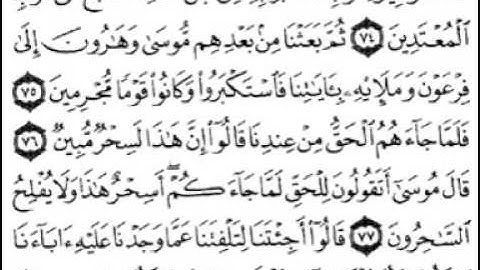 ٱلْمُعْتَدِينَ ٧٤ ثُمَّ بَعَثْنَا مِنۢ بَعْدِهِم مُّوسَىٰ وَهَٰرُونَ إِلَىٰ
فِرْعَوْنَ وَمَلَإِيْهِۦ بِـَٔايَٰتِنَا فَٱسْتَكْبَرُوا۟ وَكَانُوا۟ قَوْمًا مُّجْرِمِينَ ٧٥
فَلَمَّا جَآءَهُمُ ٱلْحَقُّ مِنْ عِندِنَا قَالُوٓا۟ إِنَّ هَٰذَا لَسِحْرٌ مُّبِينٌ ٧٦
قَالَ مُوسَىٰٓ أَتَقُولُونَ لِلْحَقِّ لَمَّا جَآءَكُمْ أَسِحْرٌ هَٰذَا وَلَا يُفْلِحُ
ٱلسَّٰحِرُونَ ٧٧ قَالُوٓا۟ أَجِئْتَنَا لِتَلْفِتَنَا عَمَّا وَجَدْنَا عَلَيْهِ ءَابَآءَنَا